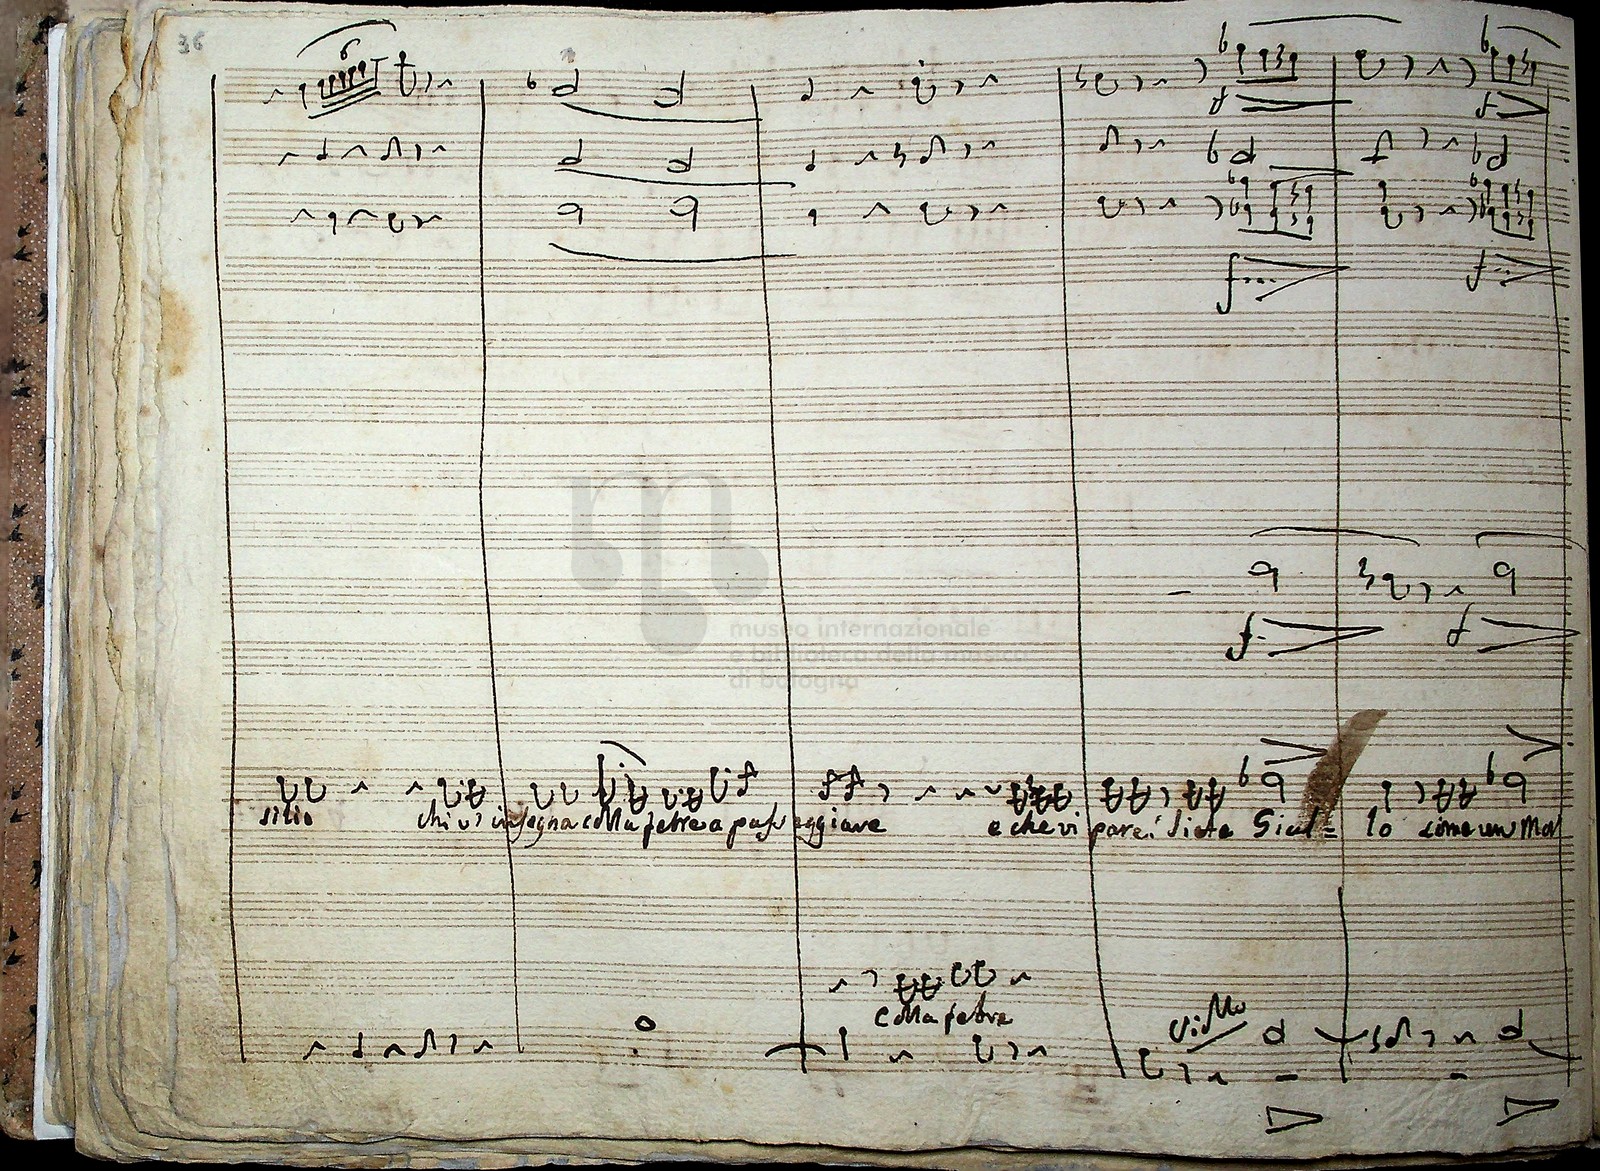 36
6
f
f
f
f
museo internazionale
e biblioteca della musica
di bologna
f
f
silio chi v'insegna colla febre a passeggiare e che vi pare! siete Gial= lo come un Mor
colla febre